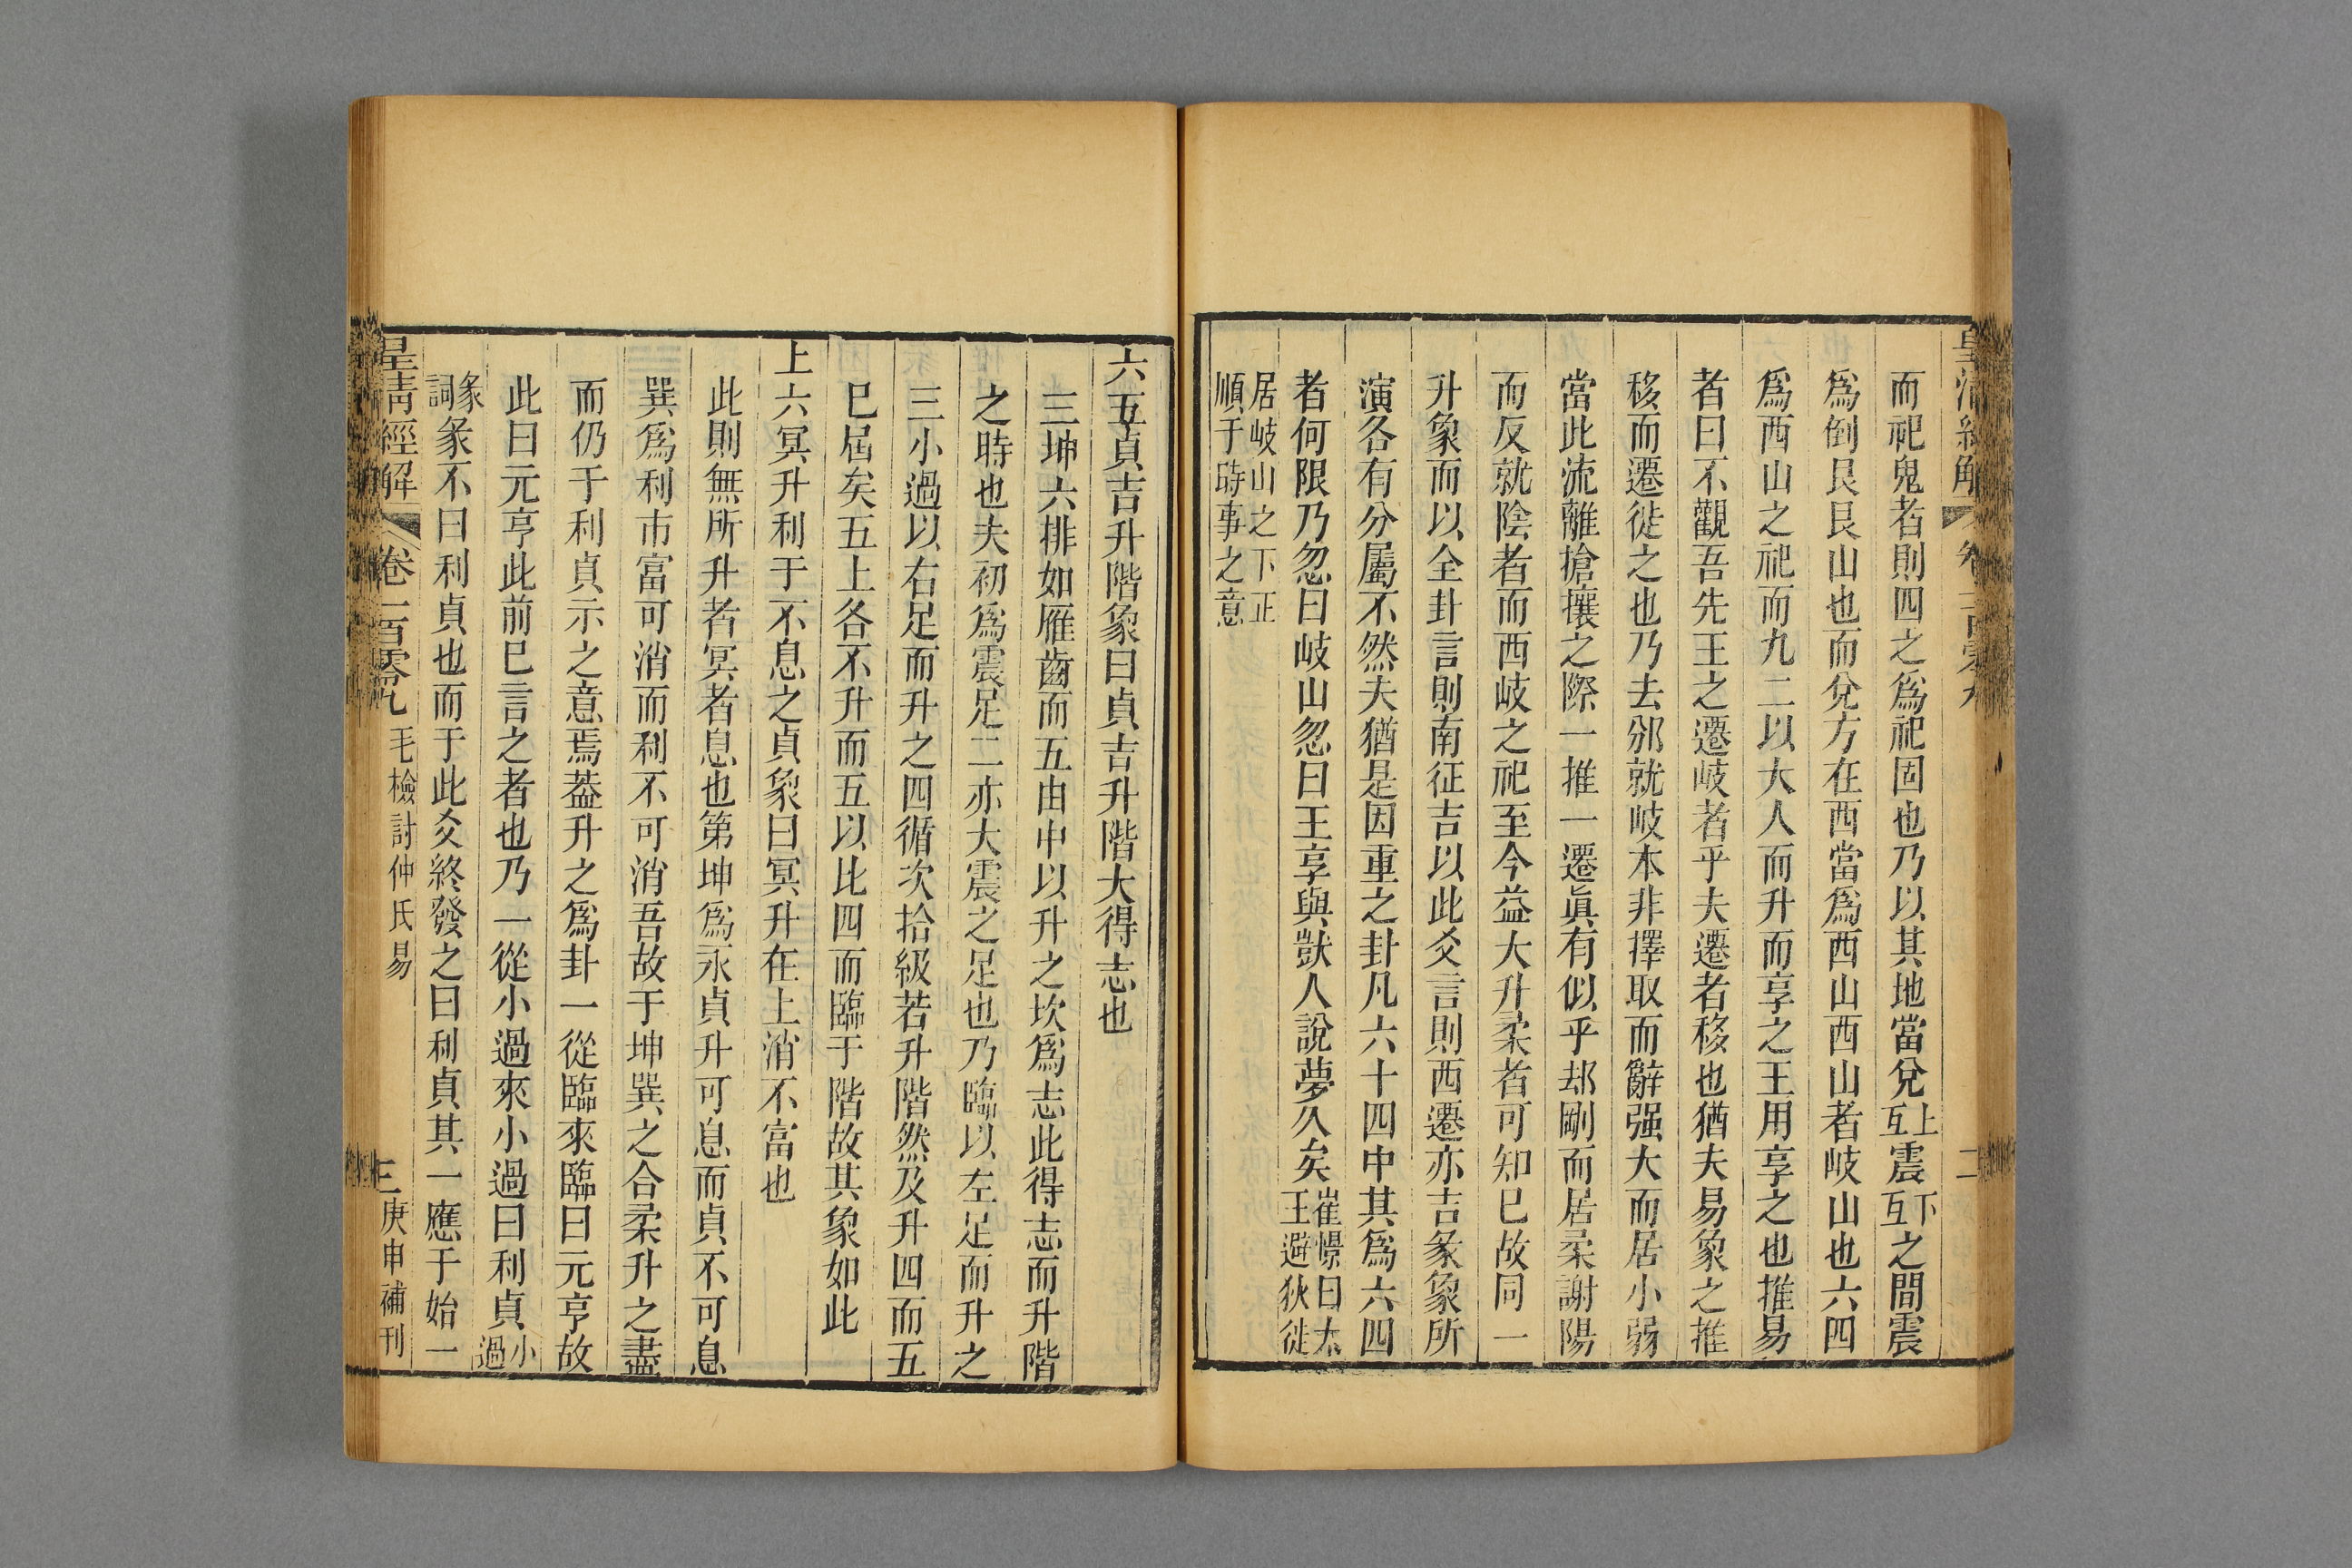 而祀鬼者則四之爲祀固也乃以其地當兌上互震下互之間震
爲倒艮艮山也而兌方在西當爲西山西山者岐山也六四
爲西山之祀而九二以大人而升而享之王用享之也推易
者曰不觀吾先王之遷岐者乎夫遷者移也猶夫易象之推
移而遷徙之也乃去邠就岐本非擇取而辭强大而居小弱
當此流離搶攘之際一推一遷眞有似乎刦剛而居柔謝陽
而反就陰者而西岐之祀至今益大升柔者可知已故同一
升象而以全卦言則南征吉以此爻言則西遷亦吉彖象所
演各有分屬不然夫猶是因重之卦凡六十四中其爲六四
者何限乃忽曰岐山忽曰王享與獃人說夢久矣崔憬曰太王避狄徙
居岐山之下正順于時事之意
六五貞吉升階象曰貞吉升階大得志也
三坤六排如雁齒而五由中以升之坎爲志此得志而升階
之時也夫初爲震足二亦大震之足也乃臨以左足而升之
三小過以右足而升之四循次拾級若升階然及升四而五
已屆矣五上各不升而五以比四而臨于階故其象如此
上六冥升利于不息之貞象曰冥升在上消不富也
此則無所升者冥者息也第坤爲永貞升可息而貞不可息
巽爲利市富可消而利不可消吾故于坤巽之合柔升之盡
而仍于利貞示之意焉葢升之爲卦一從臨來臨曰元亨故
此曰元亨此前已言之者也乃一從小過來小過曰利貞小過
彖詞彖不曰利貞也而于此爻終發之曰利貞其一應于始一
皇清經解 卷一百零九 毛檢討仲氏易 三 庚申補刊